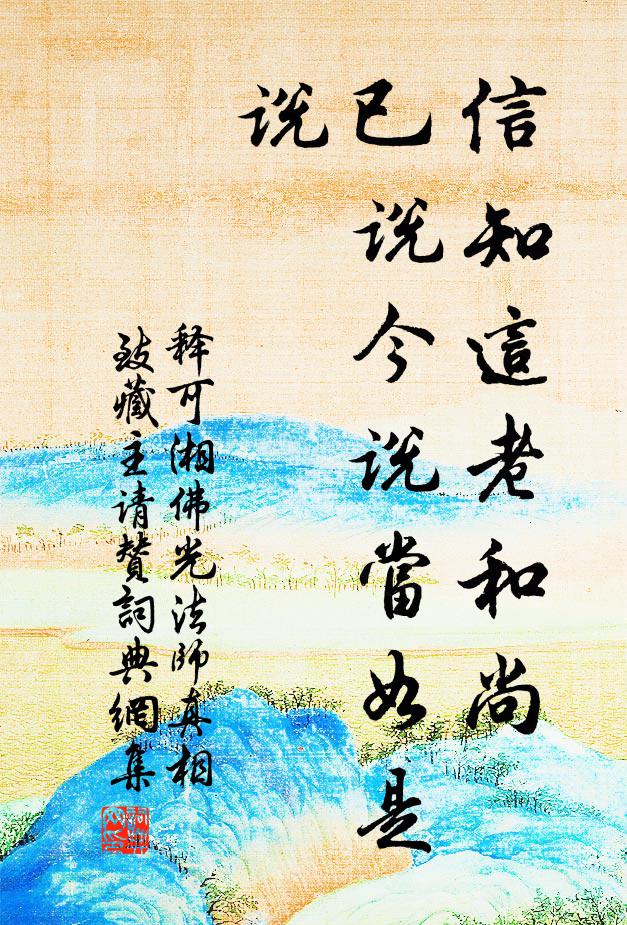 信知這老和尚
已说今说當如是
说
释可湘佛光法師真相
致藏主请赞詞典網集